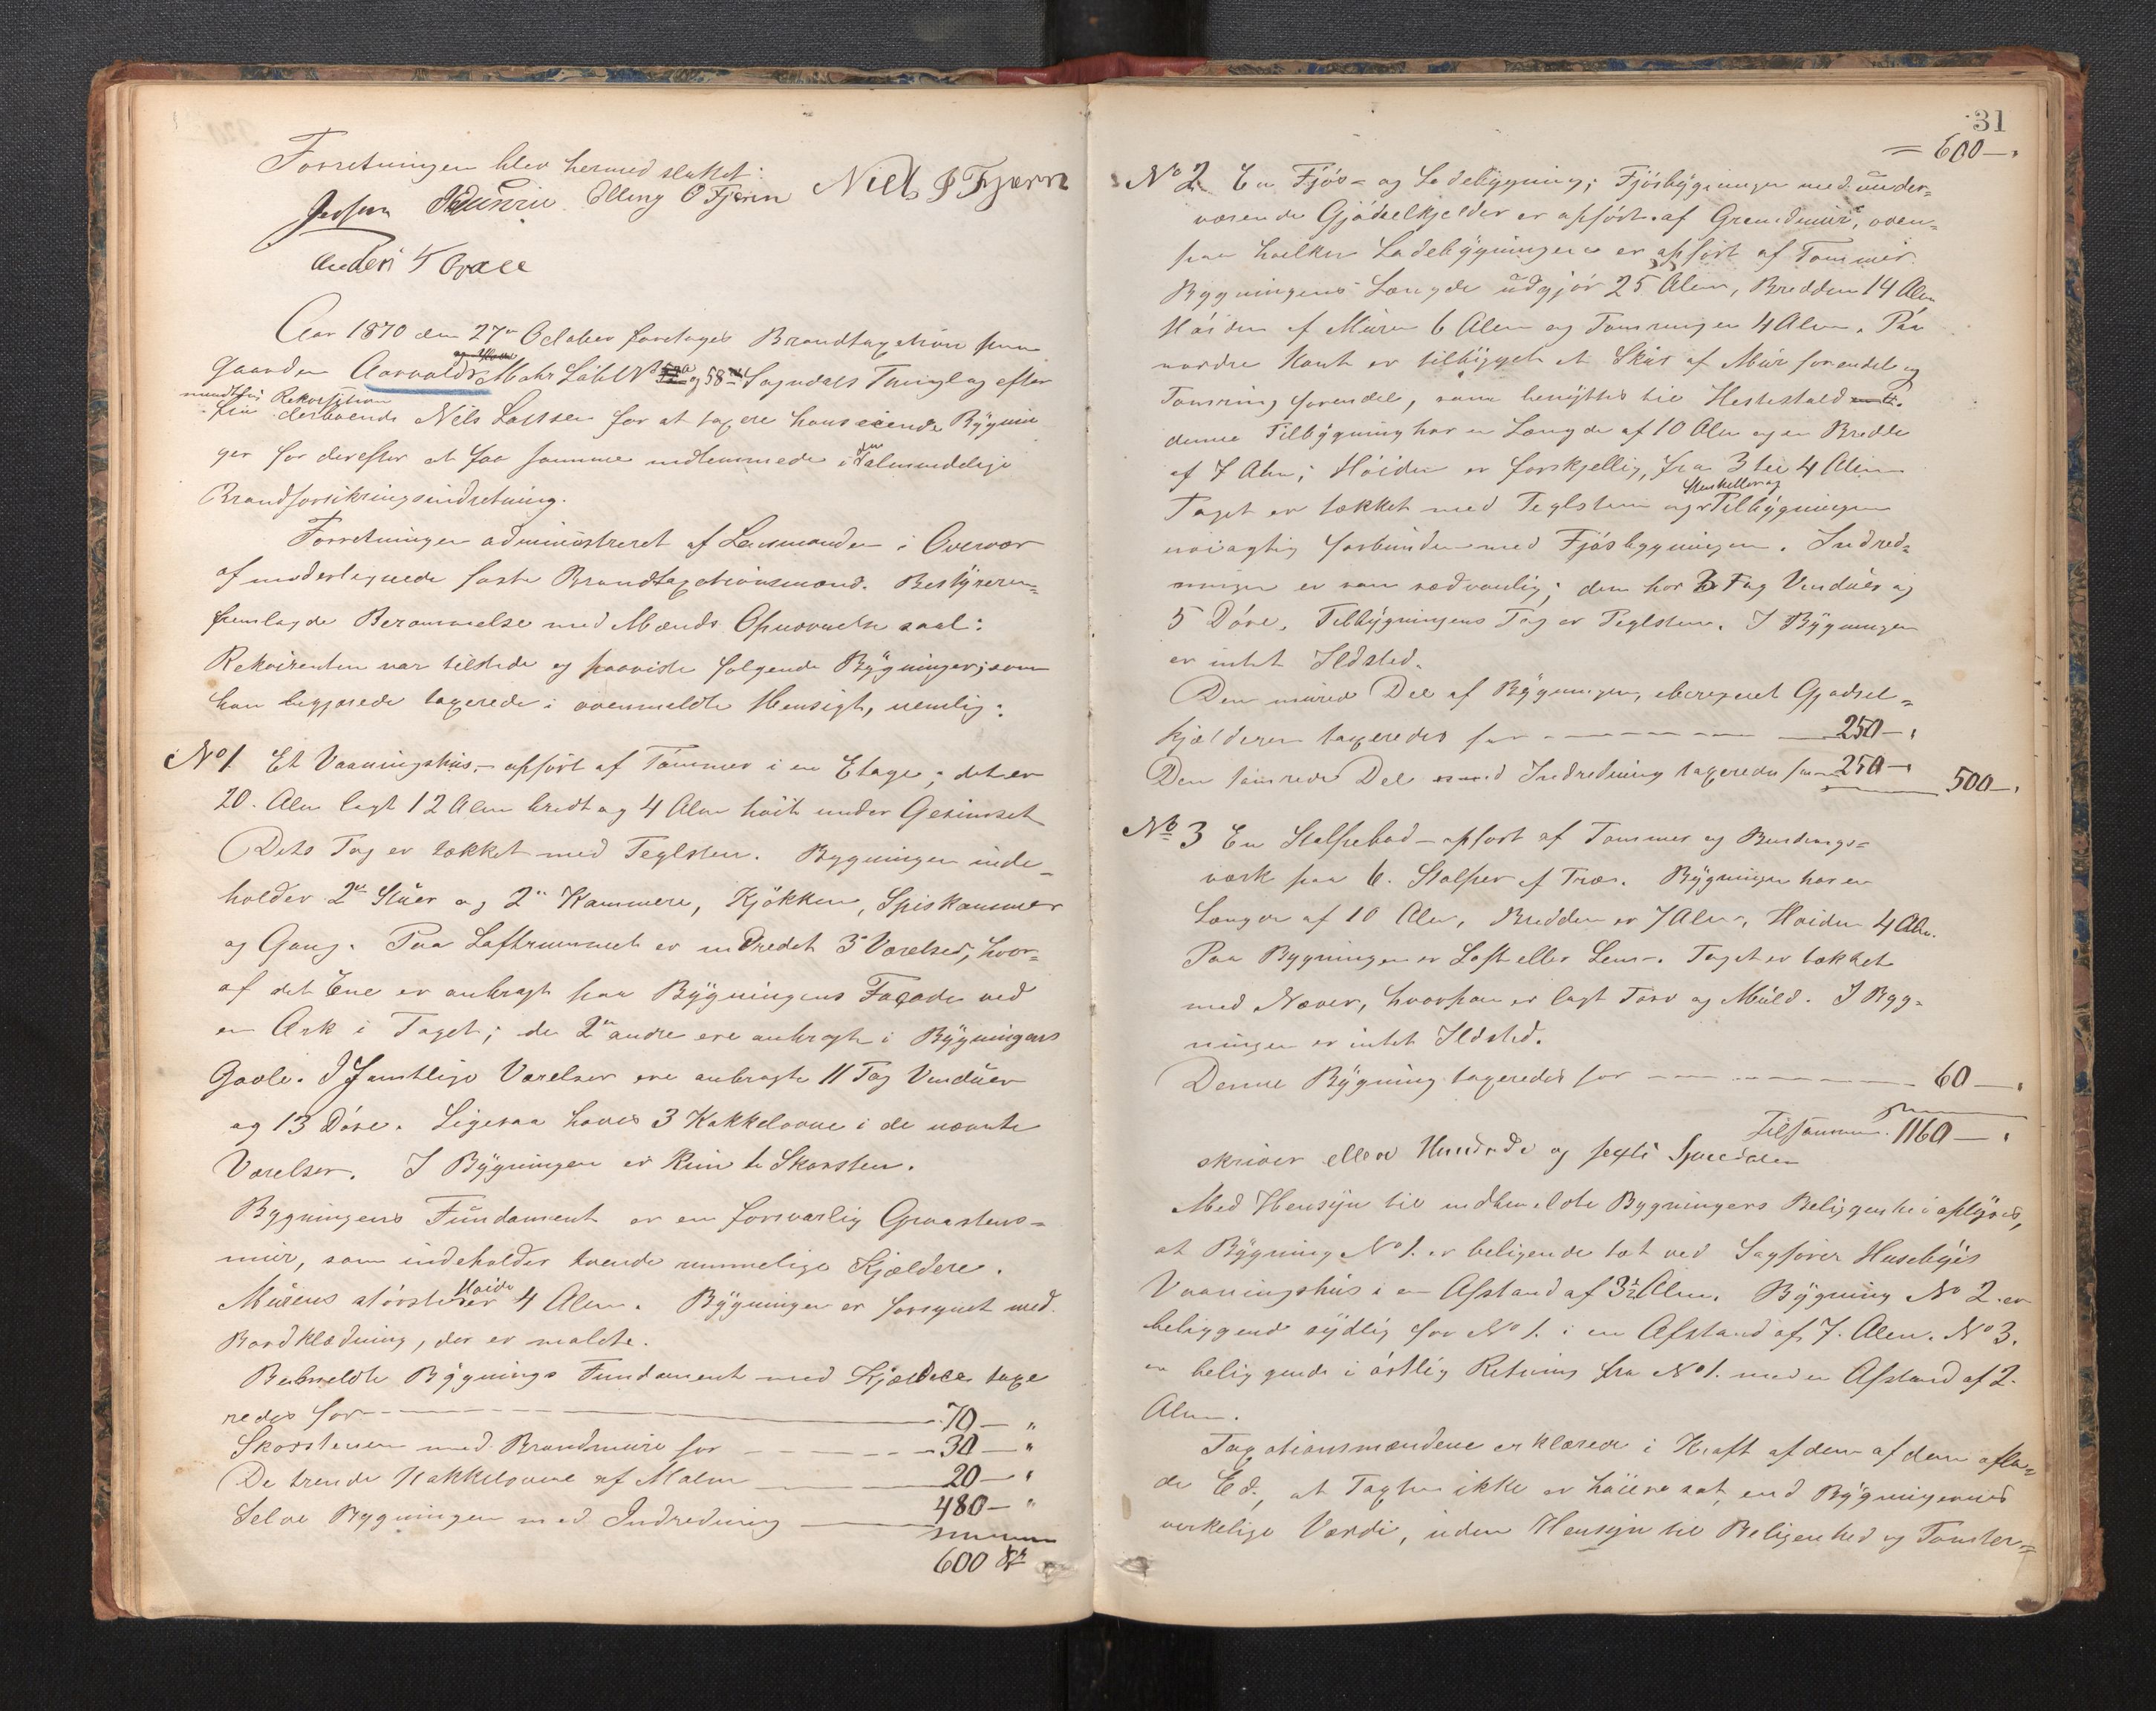 Forretningen blev hermed sluttet:
Ølling O Fjærn Niels J Fjærn
Anders
Aar 1870 den 27de October foretoges Brandtaxation paa
Gaarden Aarvolds Matr Løbe No og 58 Sogndals Thinglag efter
mundtlig Rekvisition
fra derboende Nils Larssen for at taxere hans eiende Bygnin
ger for derefter at faa samme indlemmede i den almindelige
Brandforsikringsindretning.
Forretningen administreret af Lensmanden i Overvær
af undertegnede faste Brandtaxationsmænd. Bestyreren
fremlagde Berammelse med Mænds Opnævnelse saal:
Rekvirenten var tilstede og paaviste følgende Bygninger; som
han begjærede taxerede i ovenmeldte Hensigt, nemlig:
No 1. Et Vaaningshus, opført af Tømmer i en Etage; det er
20 Alen lagt 12 Alen bredt og 4 Alen høit under Gesimset
Dets Tag er tækket med Teglsten. Bygningen inde-
holder 2de Stuer og 2de Kammere, Kjøkken, Spiskammer
og Gang. Paa Loftrummet er indredet 3 Værelser, hvor-
af det Ene er anbragt paa Bygningens Façade ved
en Ark i Taget; de 2de andre ere anbragte i Bygningens
Gavle. I Samtlige Værelser ere anbragte 11 Fag Vinduer
og 13 Døre. Ligesaa haves 3 Kakkelovne i de nævnte
Værelser. I Bygningen er kun 1 Skorsten.
Bygningens Fundament er en forsvarlig Graastens-
mur, som indeholder tvende rummelige Kjældere.
Murens største Høide er 4 Alen. Bygningen er forsynet med
Bordklædning, der er malede.
Bemeldte Bygnings Fundament med Kjældere taxe
redes for 70 — "
Skorstenen med Brandmure for 30 — "
De trende Kakkelovne af Malm 20 — "
Selve Bygningen med Indredning 480 — "
600
31
= 600 — "
No 2. En Fjøs- og Ladebygning; Fjøsbygningen med under-
værende Gjødselkjelder er opført af Graasteensmur, oven-
paa hvilken Ladebygningen er opført af Tømmer.
Bygningens Længde udgjør 25 Alen, Bredden 14 Alen
Høiden af Muren 6 Alen og Tømringen 4 Alen. Paa
nordre Kant er tilbygget et Skur af Mur forendel og
Tømring forendel, som benyttes til Hestestald.
denne Tilbygning har en Længde af 10 Alen og en Bredde
af 7 Alen; Høiden er forskjellig, fra 3 til 4 Alen
Taget er tækket med Teglsten og Stenheller og Tilbygningen
nøiagtig forbunden med Fjøsbygningen. Indred-
ningen er som sædvanlig; den har 2 Fag Vinduer og
5 Døre. Tilbygningens Tag er Teglsten. I Bygningen
er intet Ildsted.
Den murede Del af Bygningen, iberegnet Gjødsel-
kjælderen taxeredes for 250 — "
Den tømrede Del med Indredning taxeredes for 250 — " 500 — "
No 3 En Stolpebod — opført af Tømmer og Bindings-
værk paa 6. Stolper af Træ. Bygningen har en
Længde af 10 Alen, Bredden er 7 Alen, Høiden 4 Alen.
Paa Bygningen er Loft eller Lem. Taget er tækket
med Næver, hvorpaa er lagt Torv og Muld. I Byg-
ningen er intet Ildsted.
Denne Bygning taxeredes for 60 — "
Tilsammen 1160 — "
skriver elleve Hundrede og sexti Speciedaler
Med Hensyn til indbemeldte Bygningers Beliggenhed oplyses,
at Bygning No 1. er beligende tæt ved Sagfører Husebyes
Vaaningshus i en Afstand af 3½ Alen. Bygning No 2. er
beliggende sydlig for No 1. i en Afstand af 7. Alen. No 3.
er beliggende i østlig Retning fra No 1. med en Afstand af 2.
Alen.
Taxationsmændene erklærede i Kraft af den af dem aflag-
de Ed, at Taxten ikke er høiere sat, end Bygningernes
virkelige Værdi, uden Hensyn til Beligenhed og Tomter-